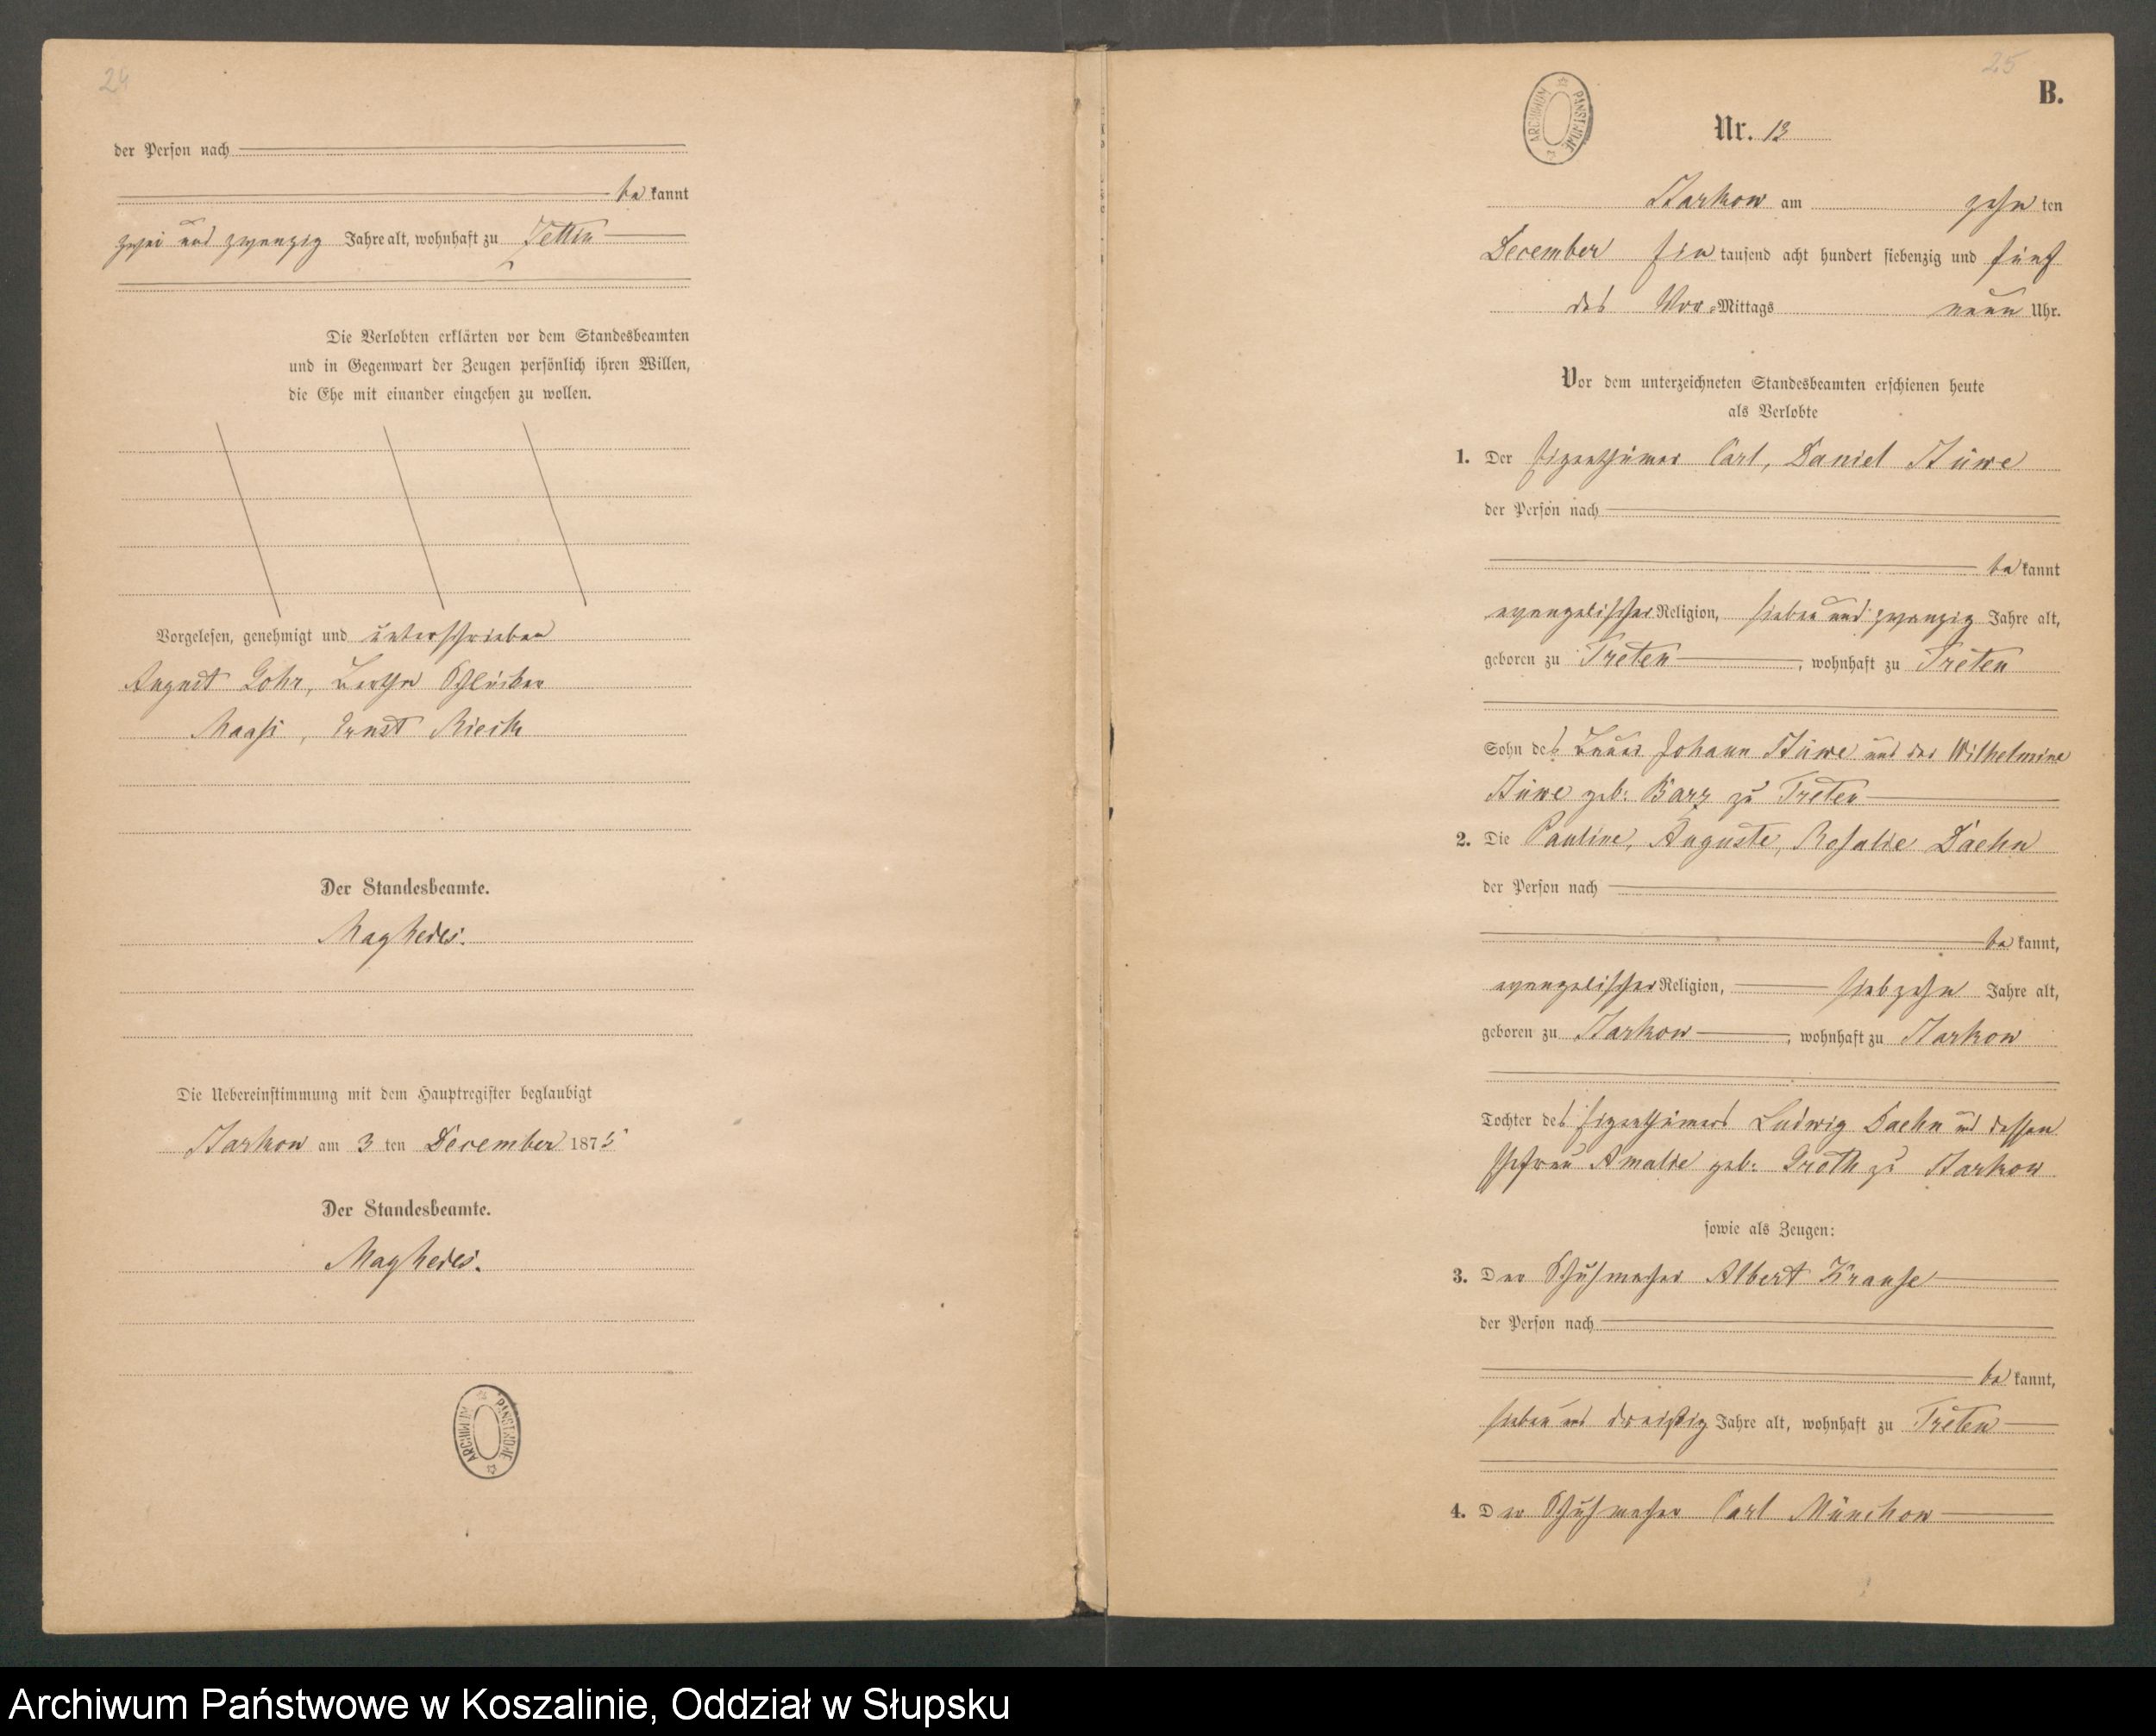 24
der Person nach
be kannt
zwei und zwanzig Jahre alt, wohnhaft zu Zettin
Die Verlobten erklärten vor dem Standesbeamten
und in Gegenwart der Zeugen persönlich ihren Willen,
die Ehe mit einander eingehen zu wollen.
Vorgelesen, genehmigt und unterschrieben
August Gohr,
Maaß, Ernst Rieck
Der Standesbeamte.
Die Uebereinstimmung mit dem Hauptregister beglaubigt
Starkow am 3 ten December 1875
Der Standesbeamte.
ARCHIWUM PAŃSTWOWE
25
B.
ARCHIWUM PAŃSTWOWE
Nr. 13
Starkow am zehn ten
December Ein tausend acht hundert siebenzig und fünf
des Vor-Mittags neun Uhr.
Vor dem unterzeichneten Standesbeamten erschienen heute
als Verlobte
1. Der Eigenthümer Carl, Daniel Stüwe
der Person nach
be kannt
evangelischer Religion, sieben und zwanzig Jahre alt,
geboren zu Treten, wohnhaft zu Treten
Sohn des Bauer Johann Stüwe und der Wilhelmine
Stüwe geb: Barz zu Treten
2. Die Pauline, Auguste, Rosalie Daehn
der Person nach
be kannt,
evangelischer Religion, siebzehn Jahre alt,
geboren zu Starkow, wohnhaft zu Starkow
Tochter des Eigenthümers Ludwig Daehn und dessen
Ehefrau Amalie geb: Groth zu Starkow
sowie als Zeugen:
3. Der Schuhmacher Albert Krause
der Person nach
be kannt,
sieben und dreißig Jahre alt, wohnhaft zu Treten
4. Der Schuhmacher Carl Münchow
Archiwum Państwowe w Koszalinie, Oddział w Słupsku